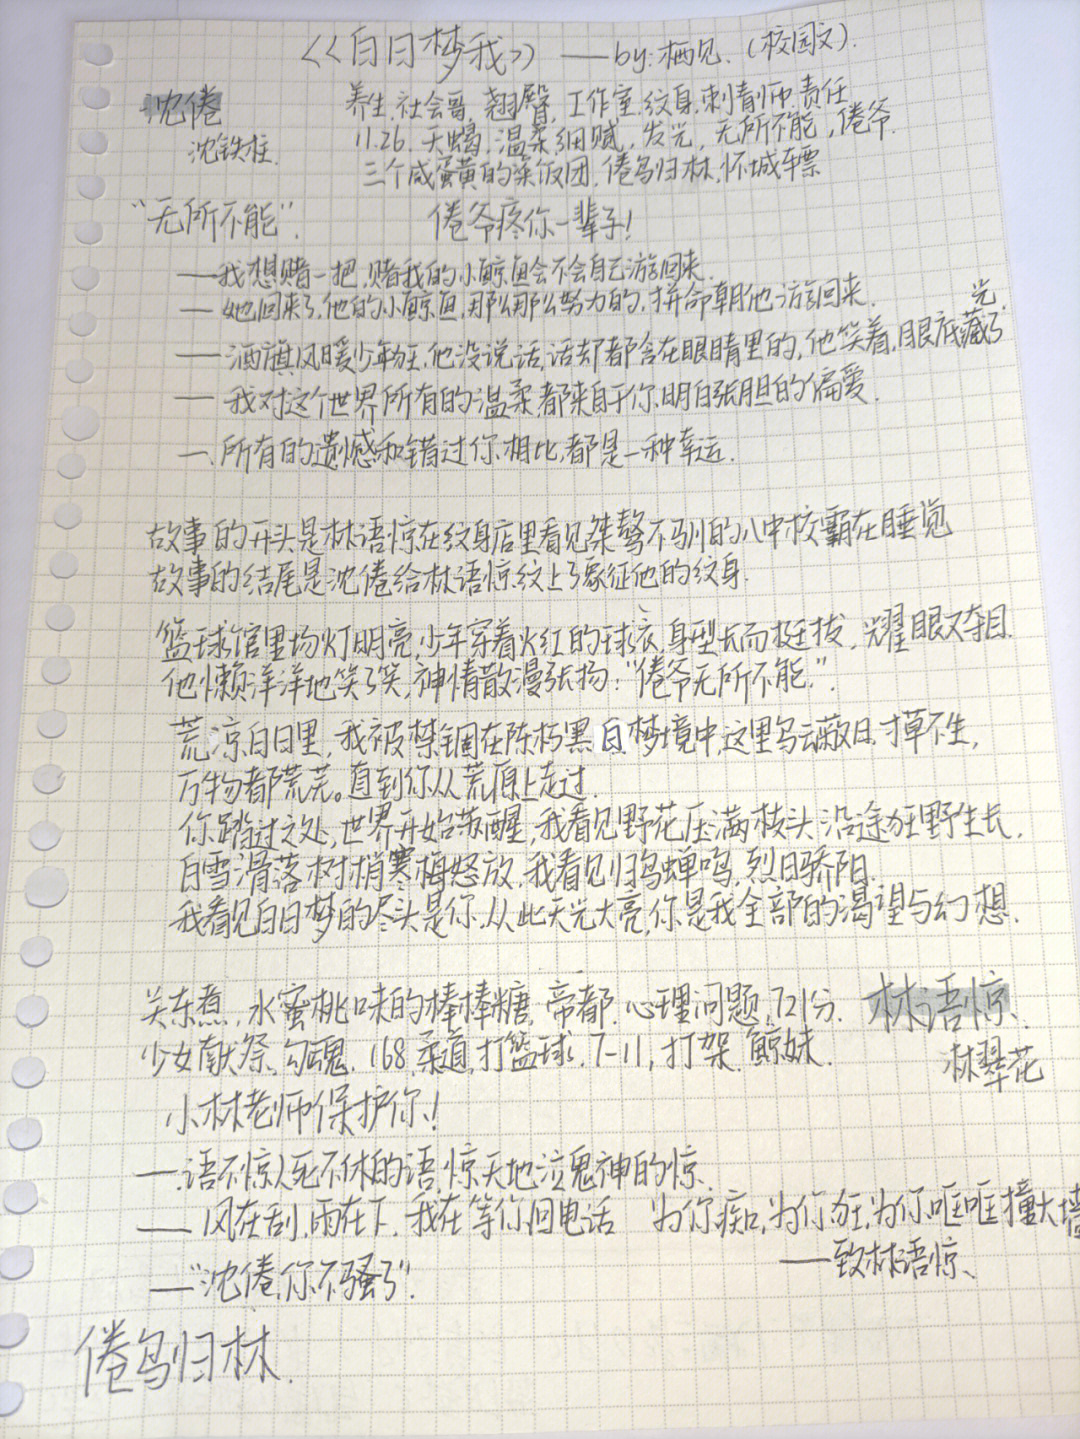 《白日梦我》——by:栖见.(校园文).
沈倦
沈铁柱.
养生.社会哥,翘臀,工作室.纹身.刺青师.责任
11.26.天蝎.温柔细腻,发光,无所不能,倦爷.
三个咸蛋黄的粢饭团.倦鸟归林,怀城车票
"无所不能".
倦爷疼你一辈子!
——我想赌一把,赌我的小鲸鱼会不会自己游回来.
——她回来了,他的小鲸鱼,那么那么努力的,拼命朝他游回来.
——酒旗风暖少年狂.他没说话,话却都含在眼睛里的,他笑着,眼底藏了光.
——我对这个世界所有的温柔都来自于你明目张胆的偏爱.
—.所有的遗憾和错过你相比,都是一种幸运.
故事的开头是林语惊在纹身店里看见桀骜不驯的八中校霸在睡觉
故事的结尾是沈倦给林语惊纹上了象征他的纹身.
篮球馆里场灯明亮,少年穿着火红的球衣,身型长而挺拔,耀眼夺目.
他懒洋洋地笑了笑,神情散漫张扬:"倦爷无所不能."
荒凉白日里,我被禁锢在陈朽黑白梦境中,这里乌云蔽日.寸草不生,
万物都荒芜。直到你从荒原上走过.
你踏过之处,世界开始苏醒,我看见野花压满枝头沿途狂野生长.
白雪滑落树梢寒梅怒放.我看见归鸟蝉鸣,烈日骄阳.
我看见白日梦的尽头是你.从此天光大亮,你是我全部的渴望与幻想.
关东煮,水蜜桃味的棒棒糖,帝都.心理问题,721分.
林语惊.
少女献祭,勾魂.168,柔道,打篮球.7-11,打架.鲸妹.
林翠花
小林老师保护你!
—.语不惊人死不休的语,惊天地泣鬼神的惊.
——风在刮,雨在下.我在等你回电话 为你痴,为你狂,为你哐哐撞大墙
——致林语惊、
——"沈倦,你不骚了".
倦鸟归林.